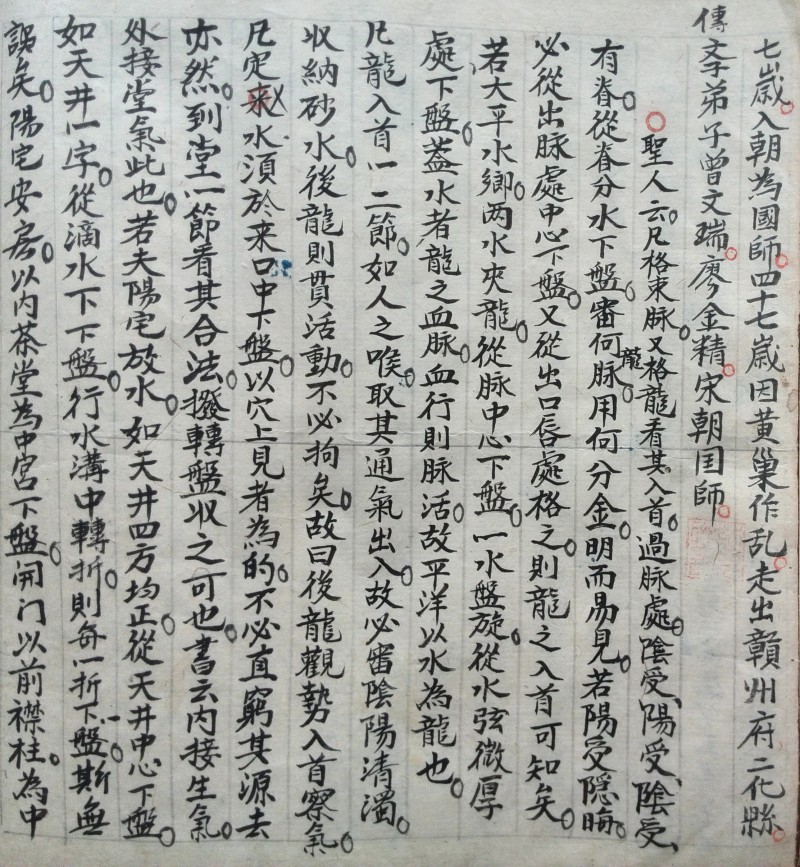 七歲入朝為國師。四十七歲因黄巢作乱。走出贛州府二化縣。
傳孝弟子曾文瑞。廖金精。宋朝国師。
聖人云。凡格来脉。又格龍看其入首。過脉處。陰受、陽受、陰受、
有脊。從脊分水下盤。審何龍脉。用何分金。明而易見。若陽受隱晦。
必從出脉處中心下盤。又從出口唇處格之。則龍之入首可知矣。
若大平水鄉。两水夾龍。從脉中心下盤。一水盤旋。從水弦微厚
處下盤。蓋水者龍之血脉。血行則脉活。故平洋以水為龍也。
凡龍入首一二節。如人之喉。取其通氣出入。故必審陰陽清濁。
收納砂水。後龍則貫活動。不必拘矣。故曰後龍觀勢入首察氣。
凡定来水須於来口中下盤。以穴上見者為的。不必直窮其源去
亦然。到堂一節看其合法。撥轉盤收之可也。書云内接生氣。
外接堂氣此也。若夫陽宅放水。如天井四方均正。從天井中心下盤。
如天井一字。從滴水下下盤。行水溝中轉折。則每一折下一盤。斯無
誤矣。陽宅安房。以内茶堂為中宮下盤。開门以前襟柱。為中